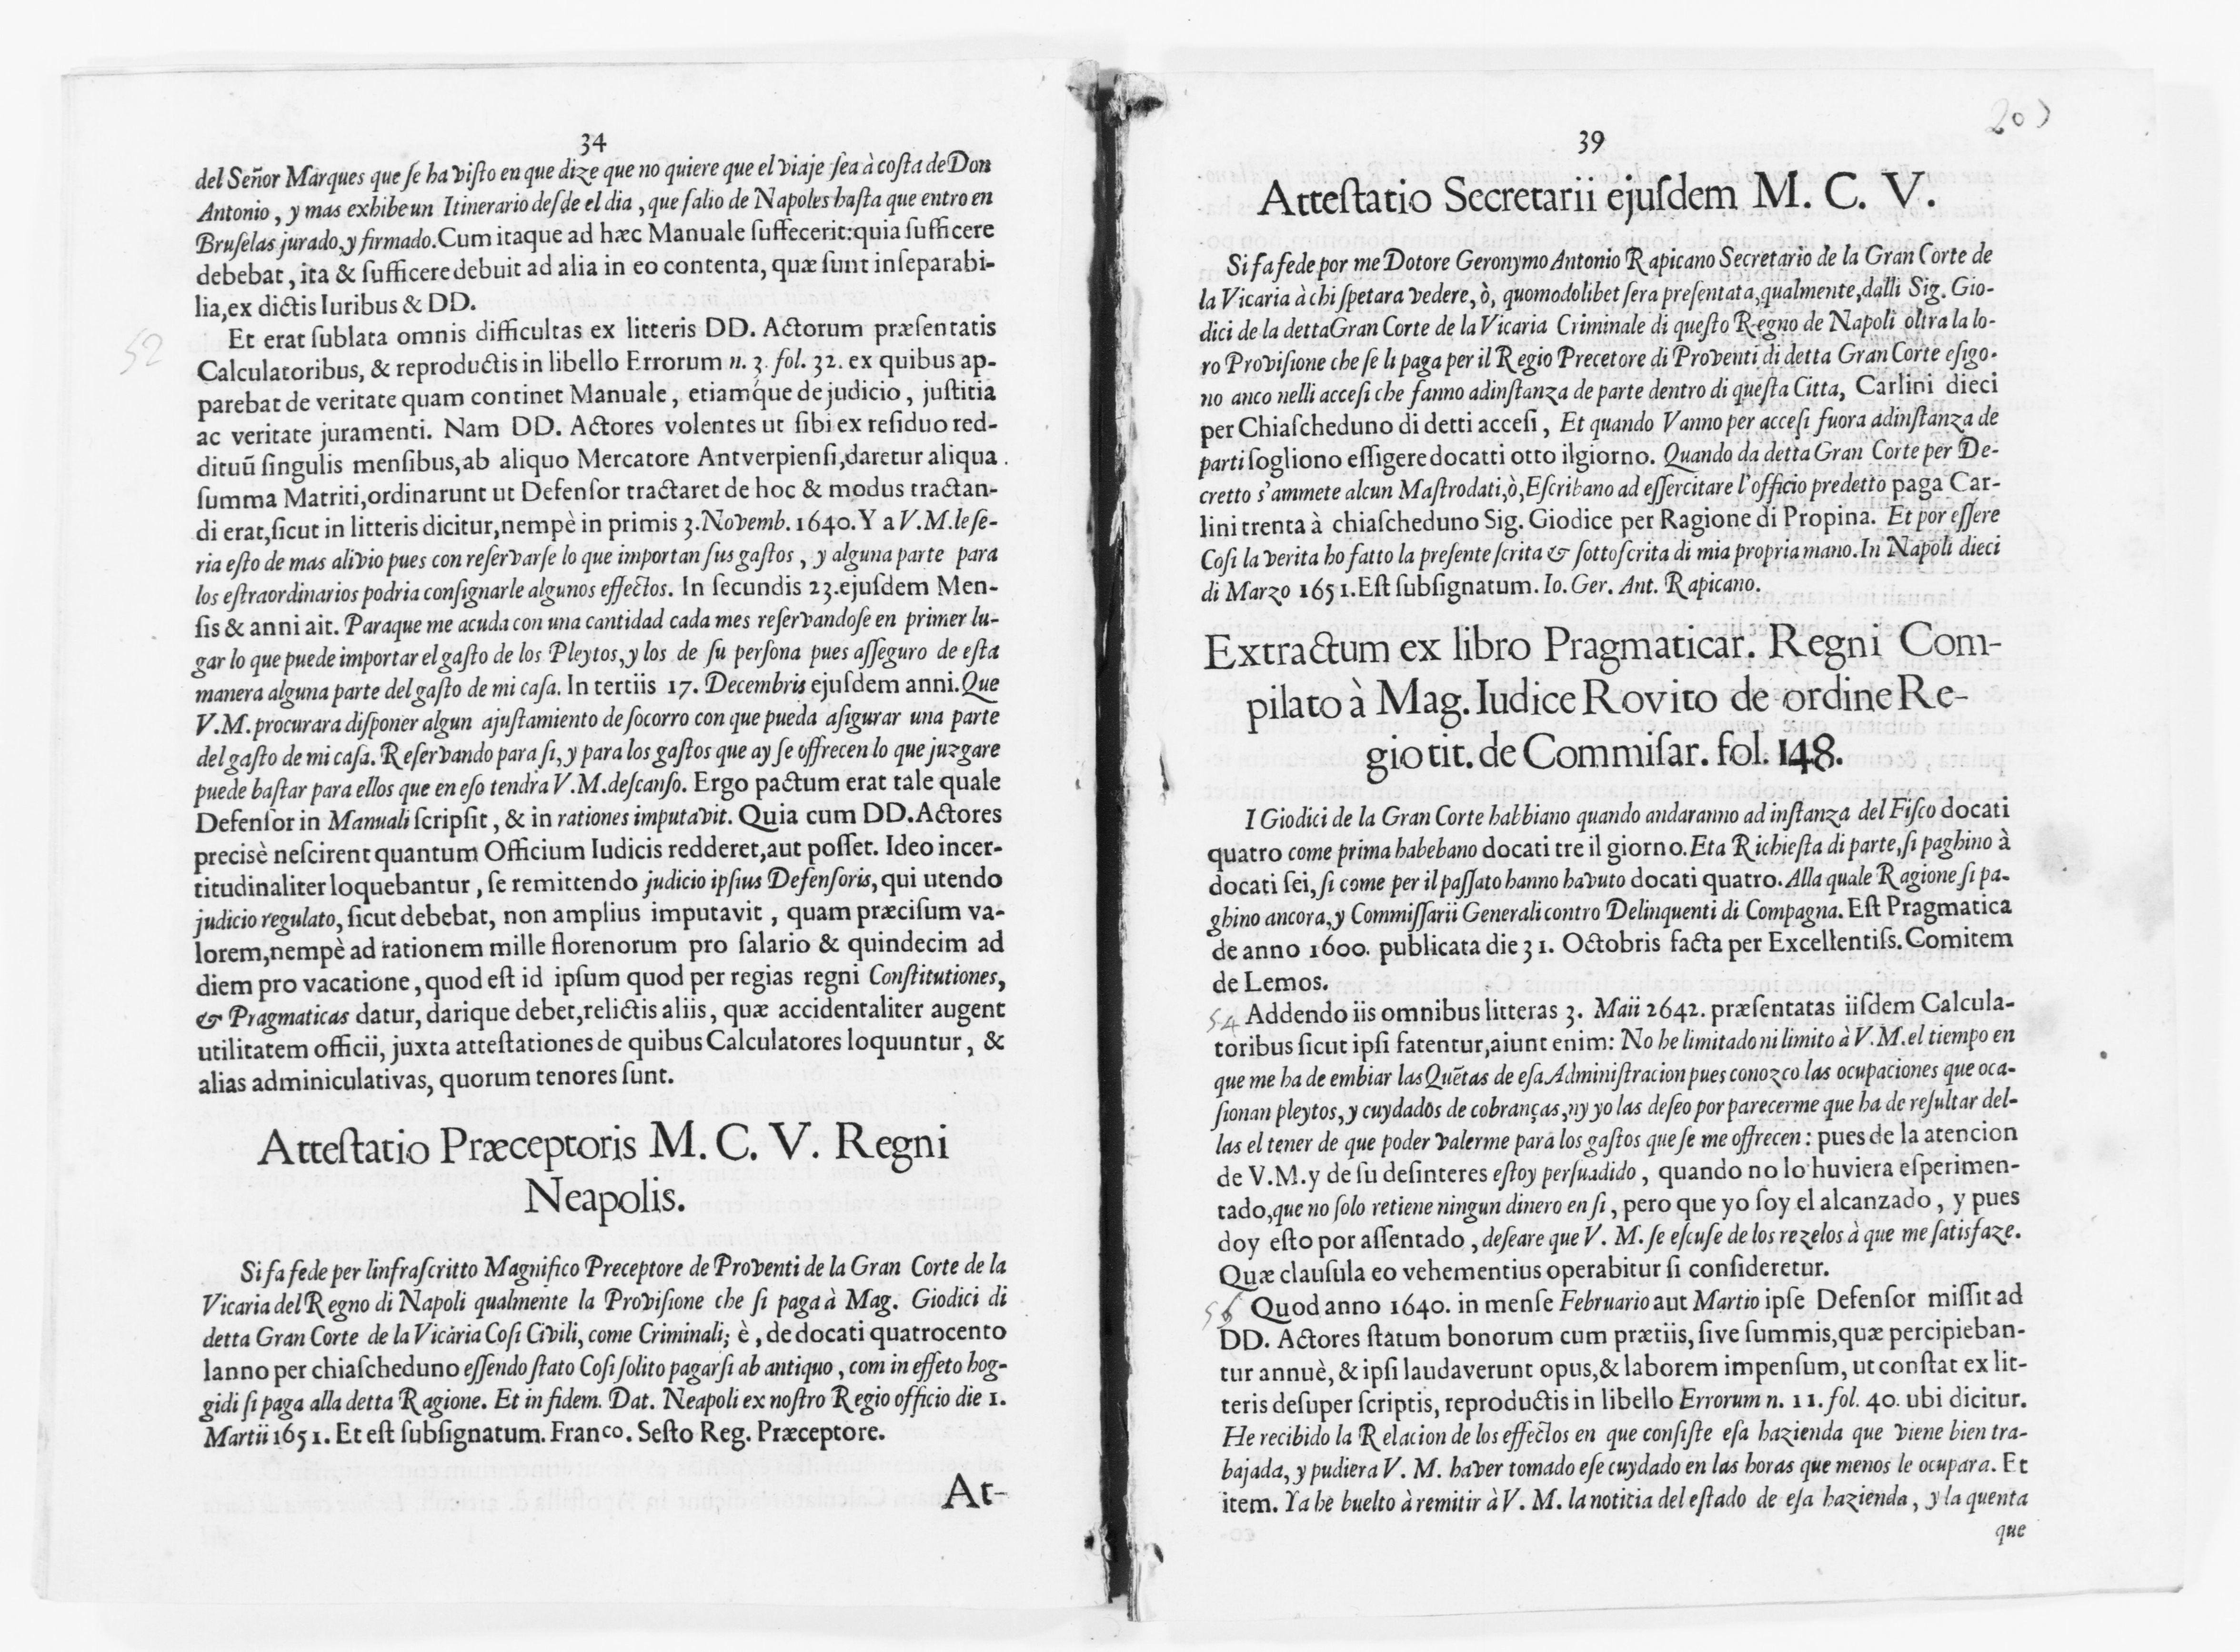 34
del Señor Marques que ſe ha viſto en que dize que no quiere que el viaje ſea à coſta de Don
Antonio, y mas exhibe un Itinerario deſde el dia, que ſalio de Napoles haſta que entro en
Bruſelas jurado, y firmado. Cum itaque ad hæc Manuale ſuffecerit: quia ſufficere
debebat, ita & ſufficere debuit ad alia in eo contenta, quæ ſunt inſeparabi-
lia, ex dictis Iuribus & DD.
52
Et erat ſublata omnis difficultas ex litteris DD. Actorum præſentatis
Calculatoribus, & reproductis in libello Errorum n. 3. fol. 32. ex quibus ap-
parebat de veritate quam continet Manuale, etiamque de judicio, juſtitia
ac veritate juramenti. Nam DD. Actores volentes ut ſibi ex reſiduo red-
dituū ſingulis menſibus, ab aliquo Mercatore Antverpienſi, daretur aliqua
ſumma Matriti, ordinarunt ut Defenſor tractaret de hoc & modus tractan-
di erat, ſicut in litteris dicitur, nempè in primis 3. Novemb. 1640. Y a V. M. le ſe-
ria eſto de mas alivio pues con reſervarſe lo que importan ſus gaſtos, y alguna parte para
los eſtraordinarios podria conſignarle algunos effectos. In ſecundis 23. ejuſdem Men-
ſis & anni ait. Paraque me acuda con una cantidad cada mes reſervandoſe en primer lu-
gar lo que puede importar el gaſto de los Pleytos, y los de ſu perſona pues aſſeguro de eſta
manera alguna parte del gaſto de mi caſa. In tertiis 17. Decembris ejuſdem anni. Que
V. M. procurara diſponer algun ajuſtamiento de ſocorro con que pueda aſigurar una parte
del gaſto de mi caſa. Reſervando para ſi, y para los gaſtos que ay ſe offrecen lo que juzgare
puede baſtar para ellos que en eſo tendra V. M. deſcanſo. Ergo pactum erat tale quale
Defenſor in Manuali ſcripſit, & in rationes imputavit. Quia cum DD. Actores
precisè neſcirent quantum Officium Iudicis redderet, aut poſſet. Ideo incer-
titudinaliter loquebantur, ſe remittendo judicio ipſius Defenſoris, qui utendo
judicio regulato, ſicut debebat, non amplius imputavit, quam præciſum va-
lorem, nempè ad rationem mille florenorum pro ſalario & quindecim ad
diem pro vacatione, quod eſt id ipſum quod per regias regni Conſtitutiones,
& Pragmaticas datur, darique debet, relictis aliis, quæ accidentaliter augent
utilitatem officii, juxta atteſtationes de quibus Calculatores loquuntur, &
alias adminiculativas, quorum tenores ſunt.
Atteſtatio Præceptoris M. C. V. Regni
Neapolis.
Si fa fede per linfraſcritto Magnifico Preceptore de Proventi de la Gran Corte de la
Vicaria del Regno di Napoli qualmente la Proviſione che ſi paga à Mag. Giodici di
detta Gran Corte de la Vicaria Coſi Civili, come Criminali; è, de docati quatrocento
lanno per chiaſcheduno eſſendo ſtato Coſi ſolito pagarſi ab antiquo, com in effeto hog-
gidi ſi paga alla detta Ragione. Et in fidem. Dat. Neapoli ex noſtro Regio officio die 1.
Martii 1651. Et eſt ſubſignatum. Franco. Seſto Reg. Præceptore.
At-
39
Atteſtatio Secretarii ejuſdem M. C. V.
Si fa fede por me Dotore Geronymo Antonio Rapicano Secretario de la Gran Corte de
la Vicaria à chi ſpetara vedere, ò, quomodolibet ſera preſentata, qualmente, dalli Sig. Gio-
dici de la detta Gran Corte de la Vicaria Criminale di queſto Regno de Napoli oltra la lo-
ro Proviſione che ſe li paga per il Regio Precetore di Proventi di detta Gran Corte eſigo-
no anco nelli acceſi che fanno adinſtanza de parte dentro di queſta Citta, Carlini dieci
per Chiaſcheduno di detti acceſi, Et quando Vanno per acceſi fuora adinſtanza de
parti ſogliono eſſigere docatti otto ilgiorno. Quando da detta Gran Corte per De-
cretto s'ammete alcun Maſtrodati, ò, Eſcribano ad eſſercitare l'officio predetto paga Car-
lini trenta à chiaſcheduno Sig. Giodice per Ragione di Propina. Et por eſſere
Coſi la verita ho fatto la preſente ſcrita & ſottoſcrita di mia propria mano. In Napoli dieci
di Marzo 1651. Eſt ſubſignatum. Io. Ger. Ant. Rapicano.
Extractum ex libro Pragmaticar. Regni Com-
pilato à Mag. Iudice Rovito de ordine Re-
gio tit. de Commiſar. fol. 148.
I Giodici de la Gran Corte habbiano quando andaranno ad inſtanza del Fiſco docati
quatro come prima habebano docati tre il giorno. Et a Richieſta di parte, ſi paghino à
docati ſei, ſi come per il paſſato hanno havuto docati quatro. Alla quale Ragione ſi pa-
ghino ancora, y Commiſſarii Generali contro Delinquenti di Compagna. Eſt Pragmatica
de anno 1600. publicata die 31. Octobris facta per Excellentiſs. Comitem
de Lemos.
54 Addendo iis omnibus litteras 3. Maii 2642. præſentatas iiſdem Calcula-
toribus ſicut ipſi fatentur, aiunt enim: No he limitado ni limito à V. M. el tiempo en
que me ha de embiar las Quẽtas de eſa Adminiſtracion pues conozco las ocupaciones que oca-
ſionan pleytos, y cuydados de cobranças, ny yo las deſeo por parecerme que ha de reſultar del-
las el tener de que poder valerme para los gaſtos que ſe me offrecen: pues de la atencion
de V. M. y de ſu deſinteres eſtoy perſuadido, quando no lo huviera eſperimen-
tado, que no ſolo retiene ningun dinero en ſi, pero que yo ſoy el alcanzado, y pues
doy eſto por aſſentado, deſeare que V. M. ſe eſcuſe de los rezelos à que me ſatisfaze.
Quæ clauſula eo vehementius operabitur ſi conſideretur.
Quod anno 1640. in menſe Februario aut Martio ipſe Defenſor miſſit ad
DD. Actores ſtatum bonorum cum prætiis, ſive ſummis, quæ percipieban-
tur annuè, & ipſi laudaverunt opus, & laborem impenſum, ut conſtat ex lit-
teris deſuper ſcriptis, reproductis in libello Errorum n. 11. fol. 40. ubi dicitur.
He recibido la Relacion de los effectos en que conſiſte eſa hazienda que viene bien tra-
bajada, y pudiera V. M. haver tomado eſe cuydado en las horas que menos le ocupara. Et
item. Ya he buelto à remitir à V. M. la noticia del eſtado de eſa hazienda, y la quenta
que